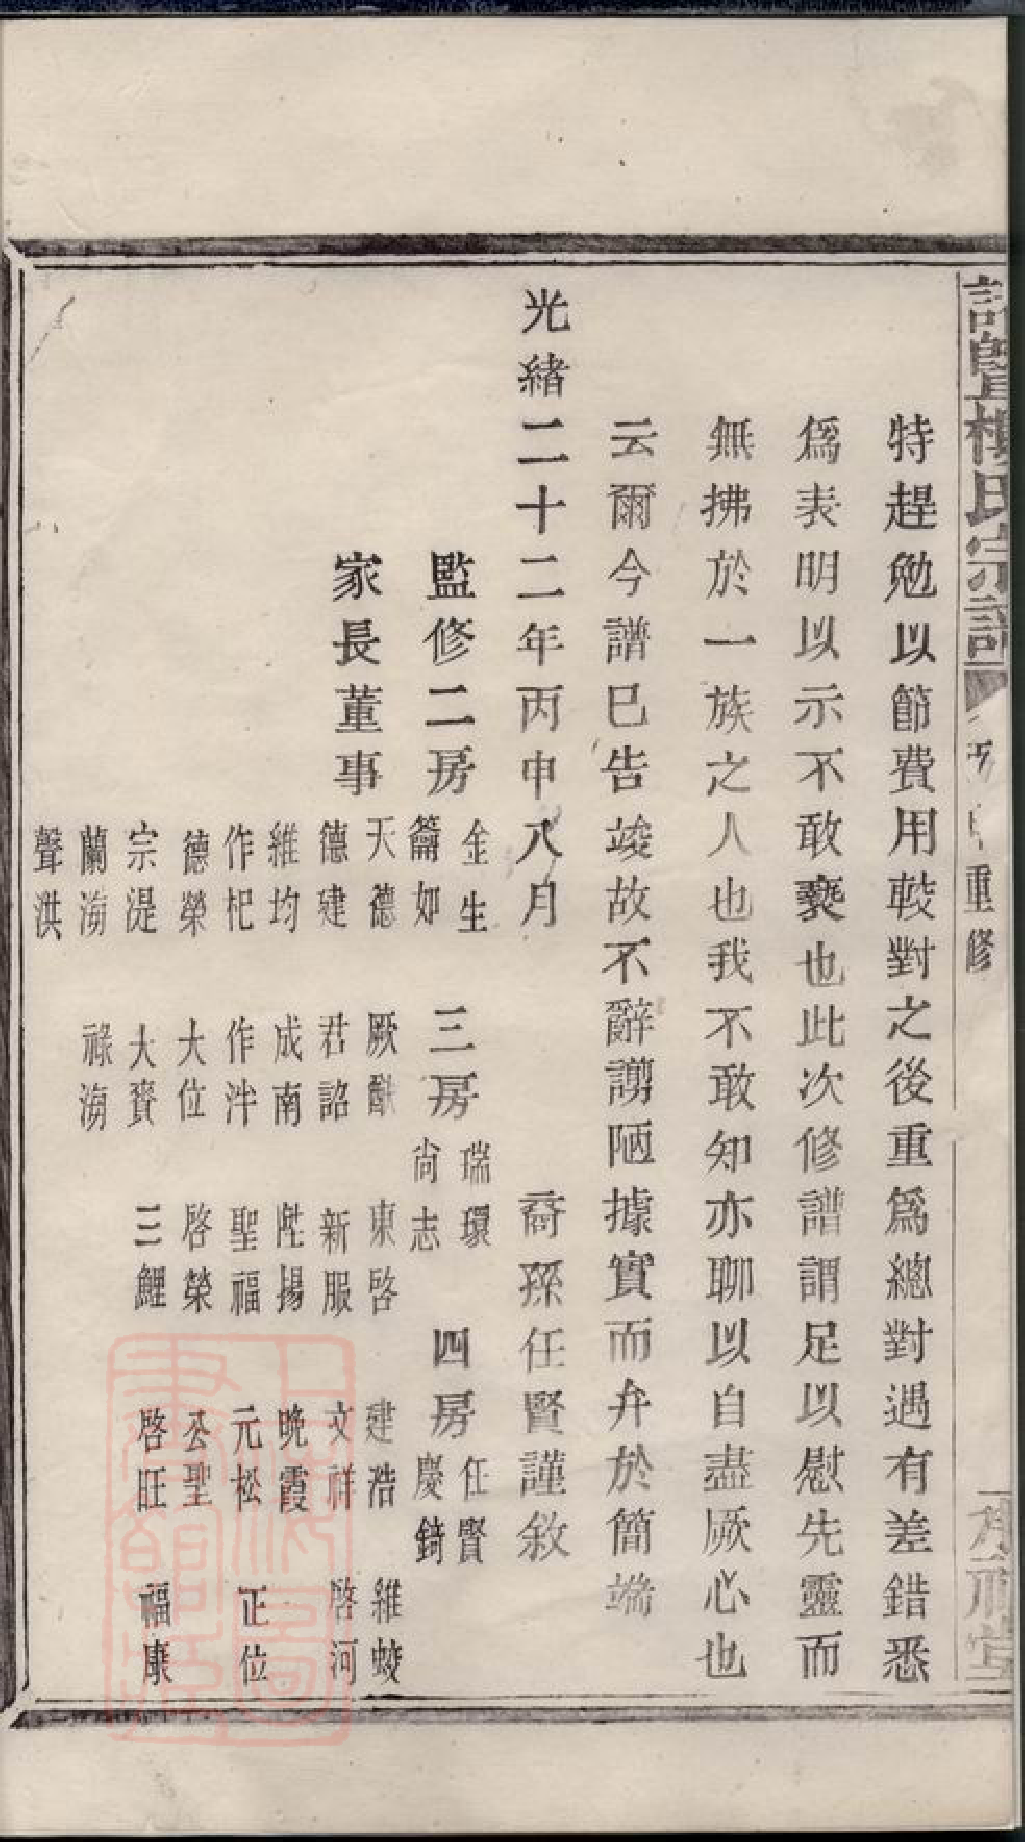 特趕勉以節費用較對之後重爲總對遇有差錯悉
爲表明以示不敢褻也此次修譜謂足以慰先靈而
無拂於一族之人也我不敢知亦聊以自盡厥心也
云爾今譜巳告竣故不辭謭陋據實而弁於簡端
光緒二十二年丙申八月 裔孫任賢謹敘
監修二房 金生 籥如 三房 瑞環 尚志 四房 任賢 慶錡
家長董事 天德 厥猷 東啓 建浩 維蛟
德建 君詔 新服 文祥 啓河
維均 成南 陞揚 晚霞
作杞 作泮 聖福 元松 正位
德榮 大位 啓榮 公聖
宗湜 大賚 三鯉 啓旺 福康
蘭海 祿海
聲洪
重修